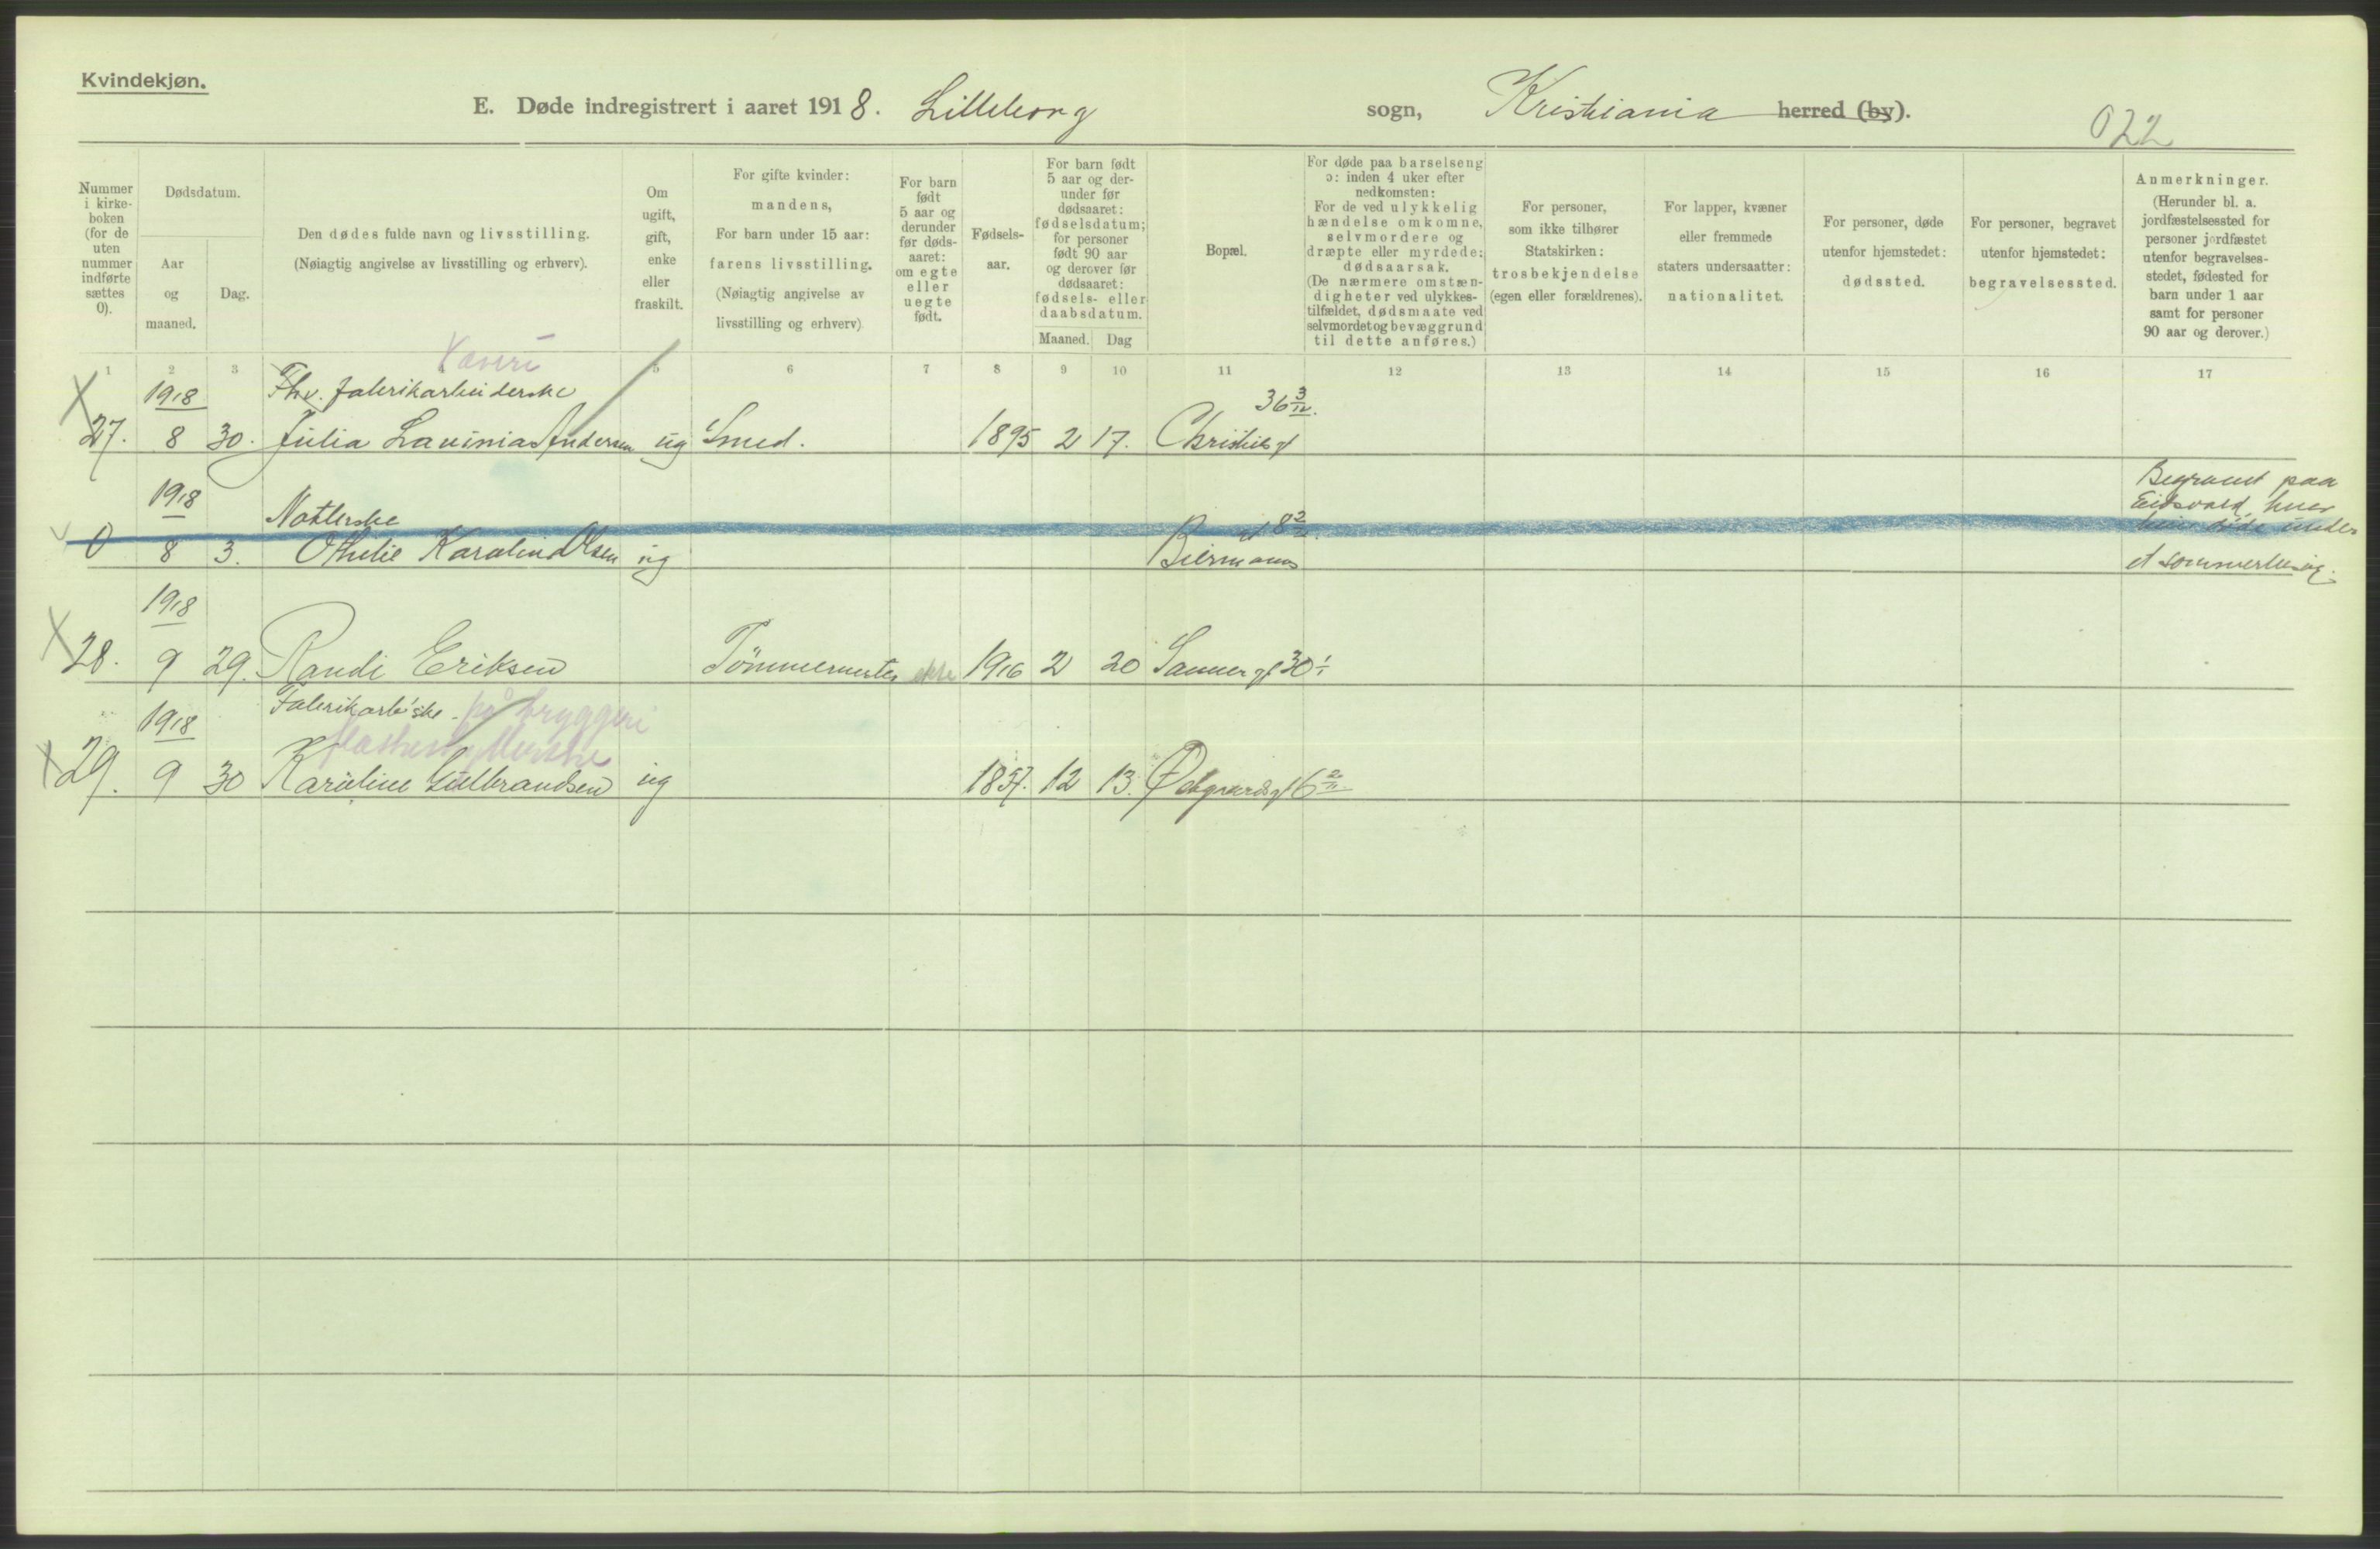 Kvindekjøn.
E. Døde indregistrert i aaret 1918. Lilleborg sogn, Kristiania herred (by).
022
Nummer i kirke-boken (for de uten nummer indførte sættes 0).
Dødsdatum.
Aar og maaned.
Dag.
Den dødes fulde navn og livsstilling.
(Nøiagtig angivelse av livsstilling og erhverv).
Om ugift, gift, enke eller fraskilt.
For gifte kvinder: mandens,
For barn under 15 aar: farens livsstilling.
(Nøiagtig angivelse av livsstilling og erhverv)
For barn født 5 aar og derunder før døds-aaret: om egte eller uegte født.
Fødsels-aar.
For barn født 5 aar og der-under før dødsaaret: fødselsdatum; for personer født 90 aar og derover før dødsaaret: fødsels- eller daabsdatum.
Maaned. Dag
Bopæl.
For døde paa barselseng ɔ: inden 4 uker efter nedkomsten:
For de ved ulykkelig hændelse omkomne, selvmordere og dræpte eller myrdede: dødsaarsak.
(De nærmere omstæn-digheter ved ulykkes-tilfældet, dødsmaate ved selvmordet og bevæggrund til dette anføres.)
For personer, som ikke tilhører Statskirken: trosbekjendelse (egen eller forældrenes).
For lapper, kvæner eller fremmede staters undersaatter: nationalitet.
For personer, døde utenfor hjemstedet: dødssted.
For personer, begravet utenfor hjemstedet: begravelsessted.
Anmerkninger.
(Herunder bl. a. jordfæstelsessted for personer jordfæstet utenfor begravelses-stedet, fødested for barn under 1 aar samt for personer 90 aar og derover.)
1 2 3 5 6 7 8 9 10 11 12 13 14 15 16 17
1918 Fhv. fabrikarbeiderske 36 3/IV.
27. 8 30. Julia Lavinia Andersen ug Smed. 1895 2 17. Christiesgt
1918 Begravet paa
Natterske Eidsvold, hvor
8 2 hun døde under
0 8 3. Othilie Karoline Olsen ug Biermanns et sommerbesøg.
1918
28. 9 29. Randi Eriksen Tömmermester ekte 1916 2 20 Sannergt 30 1
1918 Fabrikarb'ske. på bryggeri
29. 9 30 Karoline Gulbrandsen ug 1857. 12 13. Ødegaardsgt 6 2/II